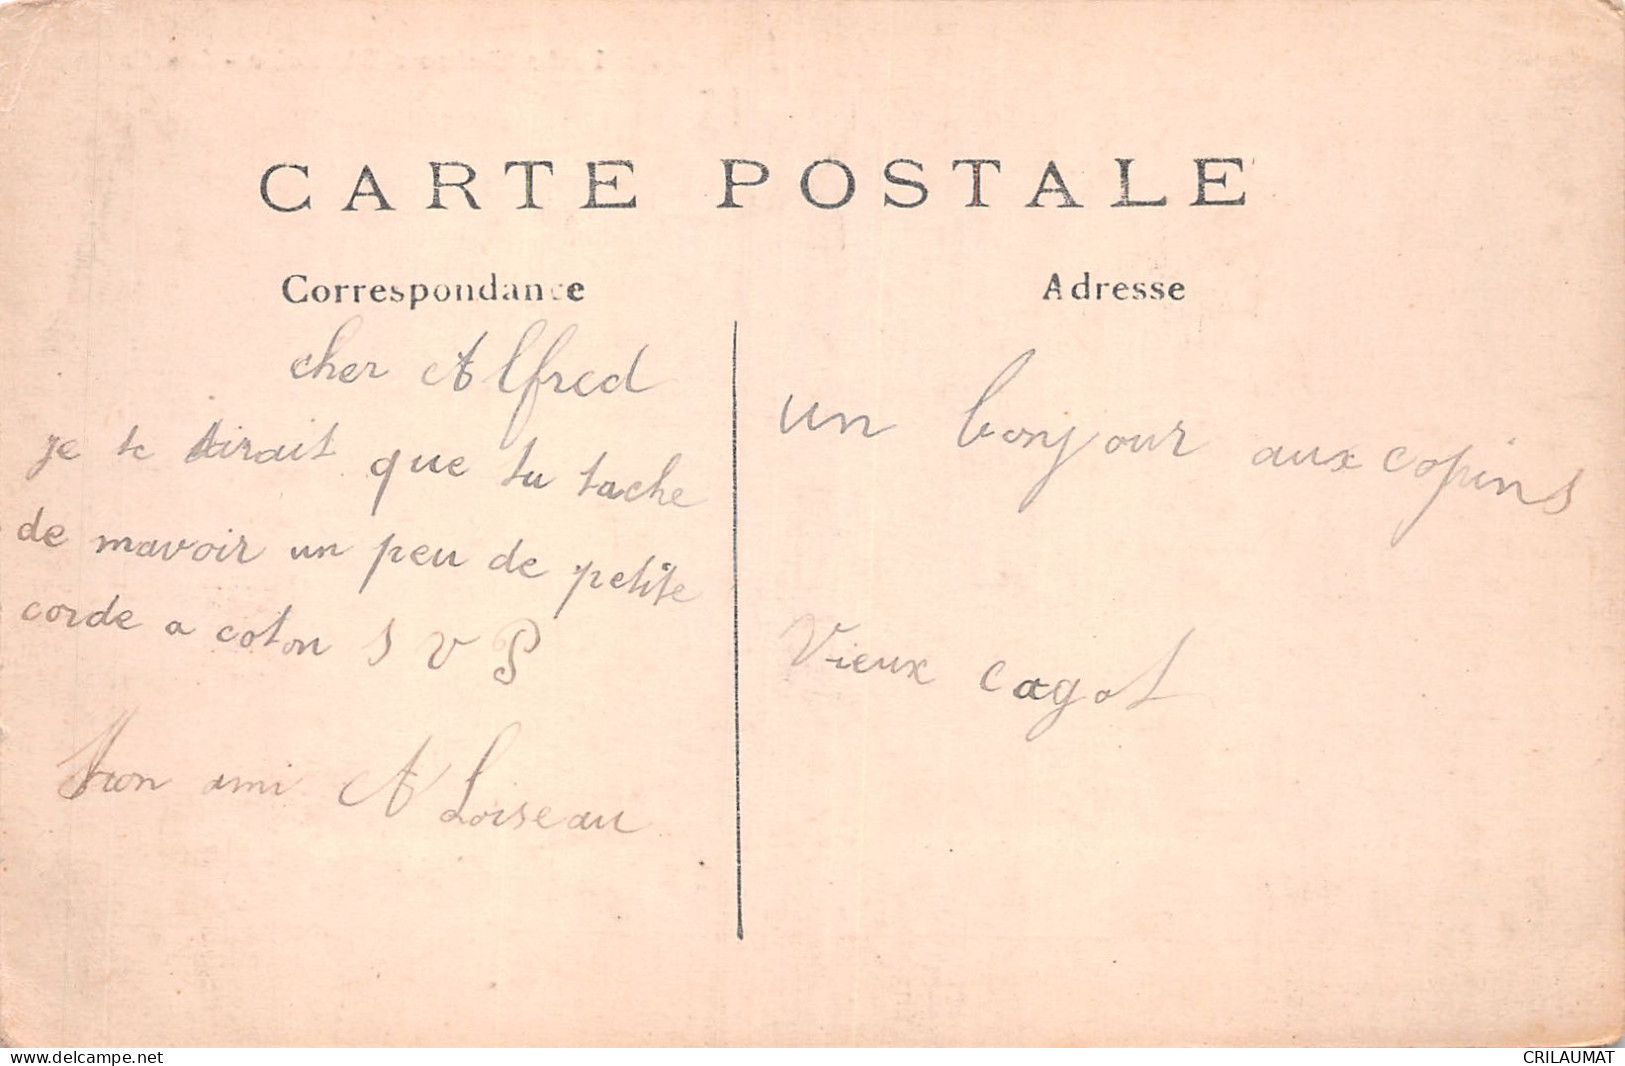 CARTE POSTALE
Correspondance
Adresse
cher Alfred
je te dirait que tu tache
de mavoir un peu de petite
corde a coton S V P
Mon ami A Loiseau
un bonjour aux copins
Vieux cagot
delcampe.net
CRILAUMAT